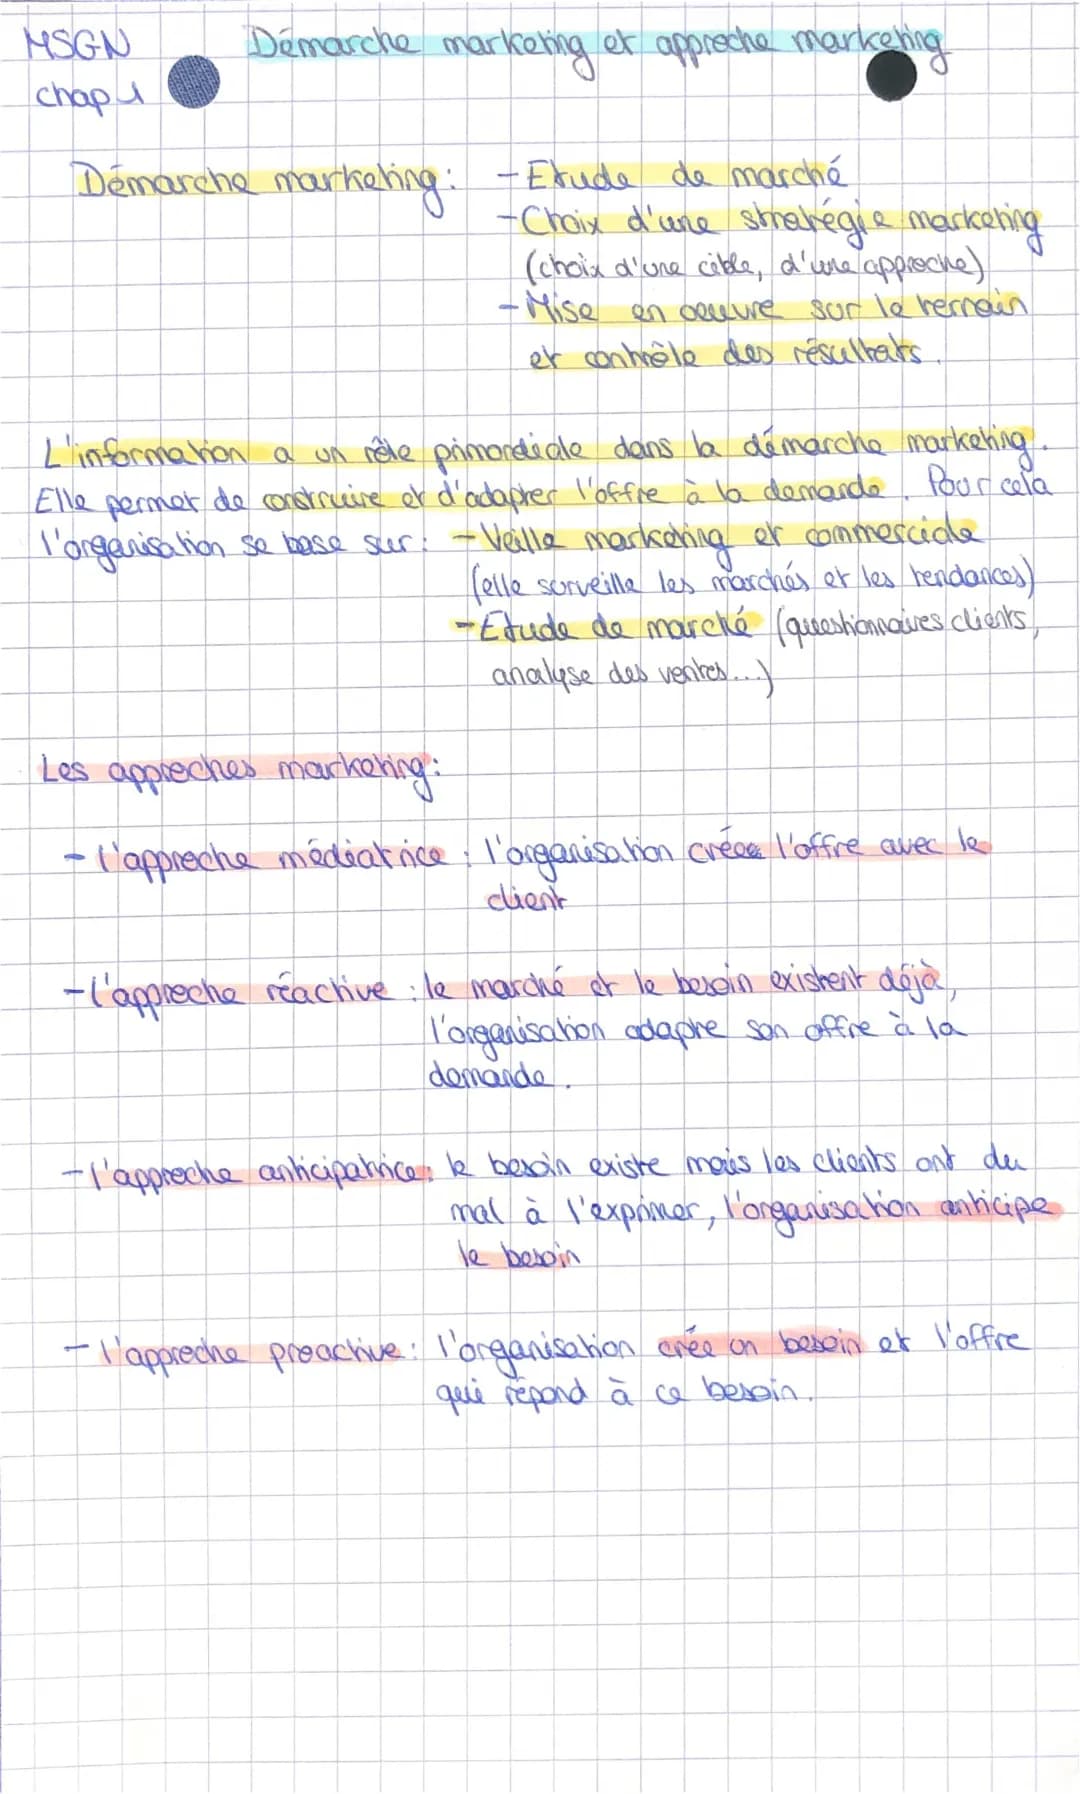 MSGN Démarche marketing et approche marketing
chap 1
Démarche marketing : - Etude de marché
- Choix d'une stratégie marketing
(choix d'une cible, d'une approche)
- Mise en oeuvre sur le terrain
et contrôle des résultats.
L'information a un rôle primordiale dans la démarche marketing.
Elle permet de construire et d'adapter l'offre à la demande. Pour cela
l'organisation se base sur : - Veille marketing et commerciale
(elle surveille les marchés et les tendances)
- Etude de marché (questionnaires clients,
analyse des ventes...)
Les approches marketing :
- l'approche médiatrice : l'organisation crée l'offre avec le
client
- l'approche réactive : le marché et le besoin existent déjà,
l'organisation adapte son offre à la
demande.
- l'approche anticipatrice : le besoin existe mais les clients ont du
mal à l'exprimer, l'organisation anticipe
le besoin
- l'approche proactive : l'organisation crée un besoin et l'offre
qui répond à ce besoin.